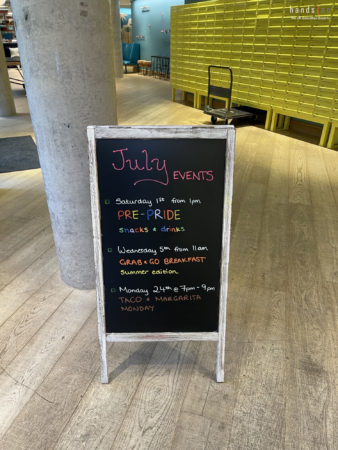 hands
July EVENTS
Saturday 1st from 1pm
PRE-PRIDE
snacks & drinks
Wednesday 5th from 11am
GRAB & GO BREAKFAST
Summer edition
Monday 24th @ 7pm - 9pm
TACO & MARGARITA
MONDAY